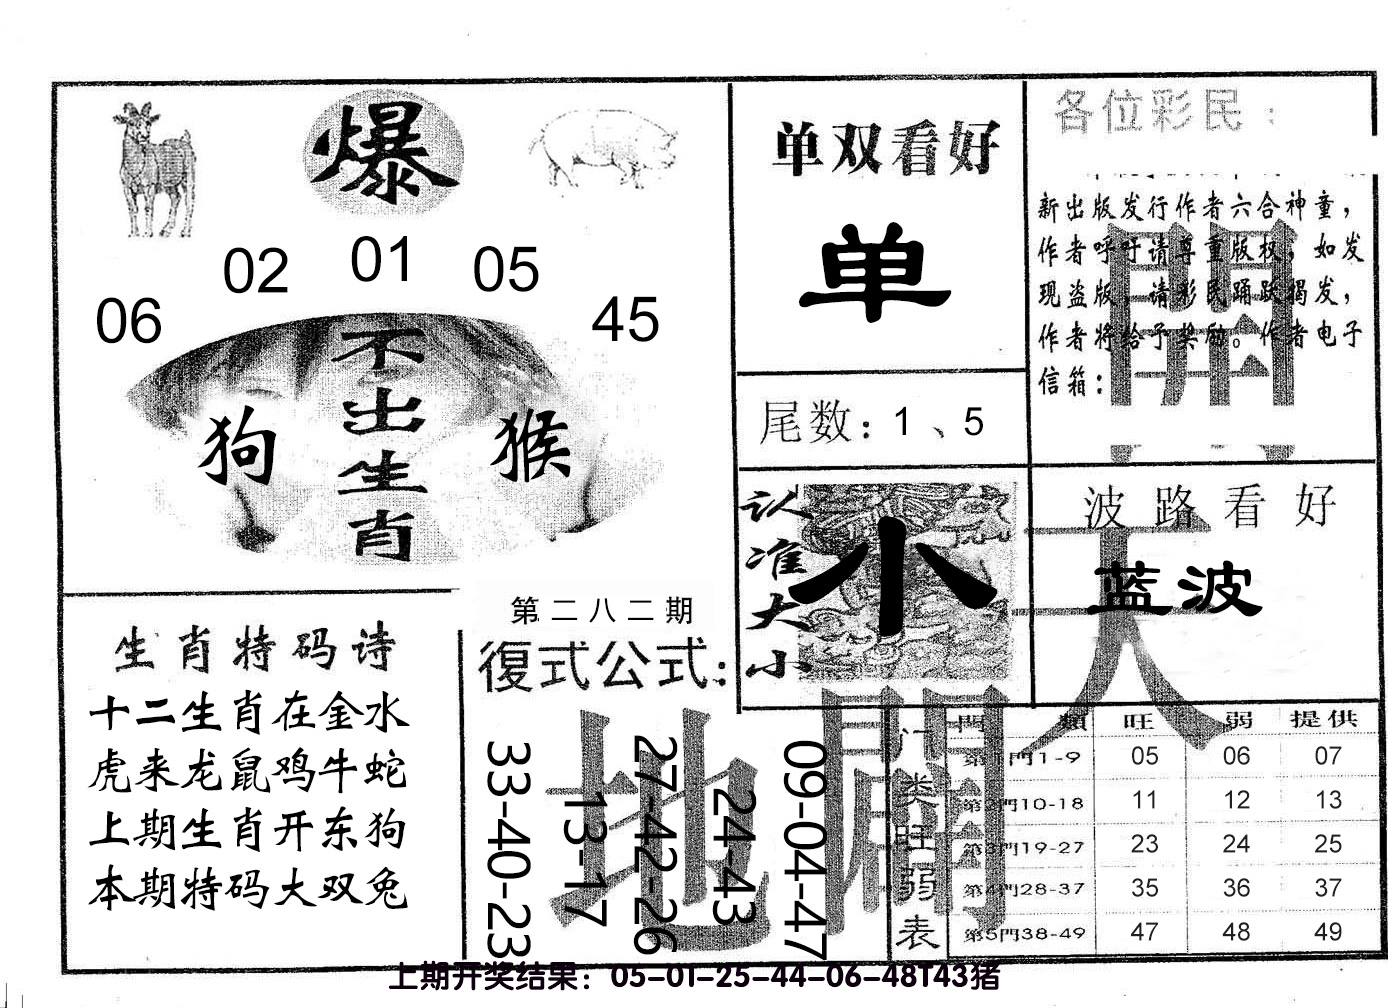 爆
02 01 05
06 45
不出生肖
狗 猴
单双看好
单
尾数：1、5
各位彩民：
新出版发行作者六合神童，
作者呼吁请尊重版权，如发
现盗版，请彩民踊跃揭发，
作者将给予奖励。作者电子
信箱：
開
天
认准大小
小
波路看好
蓝波
生肖特码诗
十二生肖在金水
虎来龙鼠鸡牛蛇
上期生肖开东狗
本期特码大双兔
第二八二期
復式公式：
33-40-23
13-17
27-42-26
24-43
09-04-47
地
門类旺弱表
門類 旺 弱 提供
第1門1-9 05 06 07
第2門10-18 11 12 13
第3門19-27 23 24 25
第4門28-37 35 36 37
第5門38-49 47 48 49
上期开奖结果：05-01-25-44-06-48T43猪